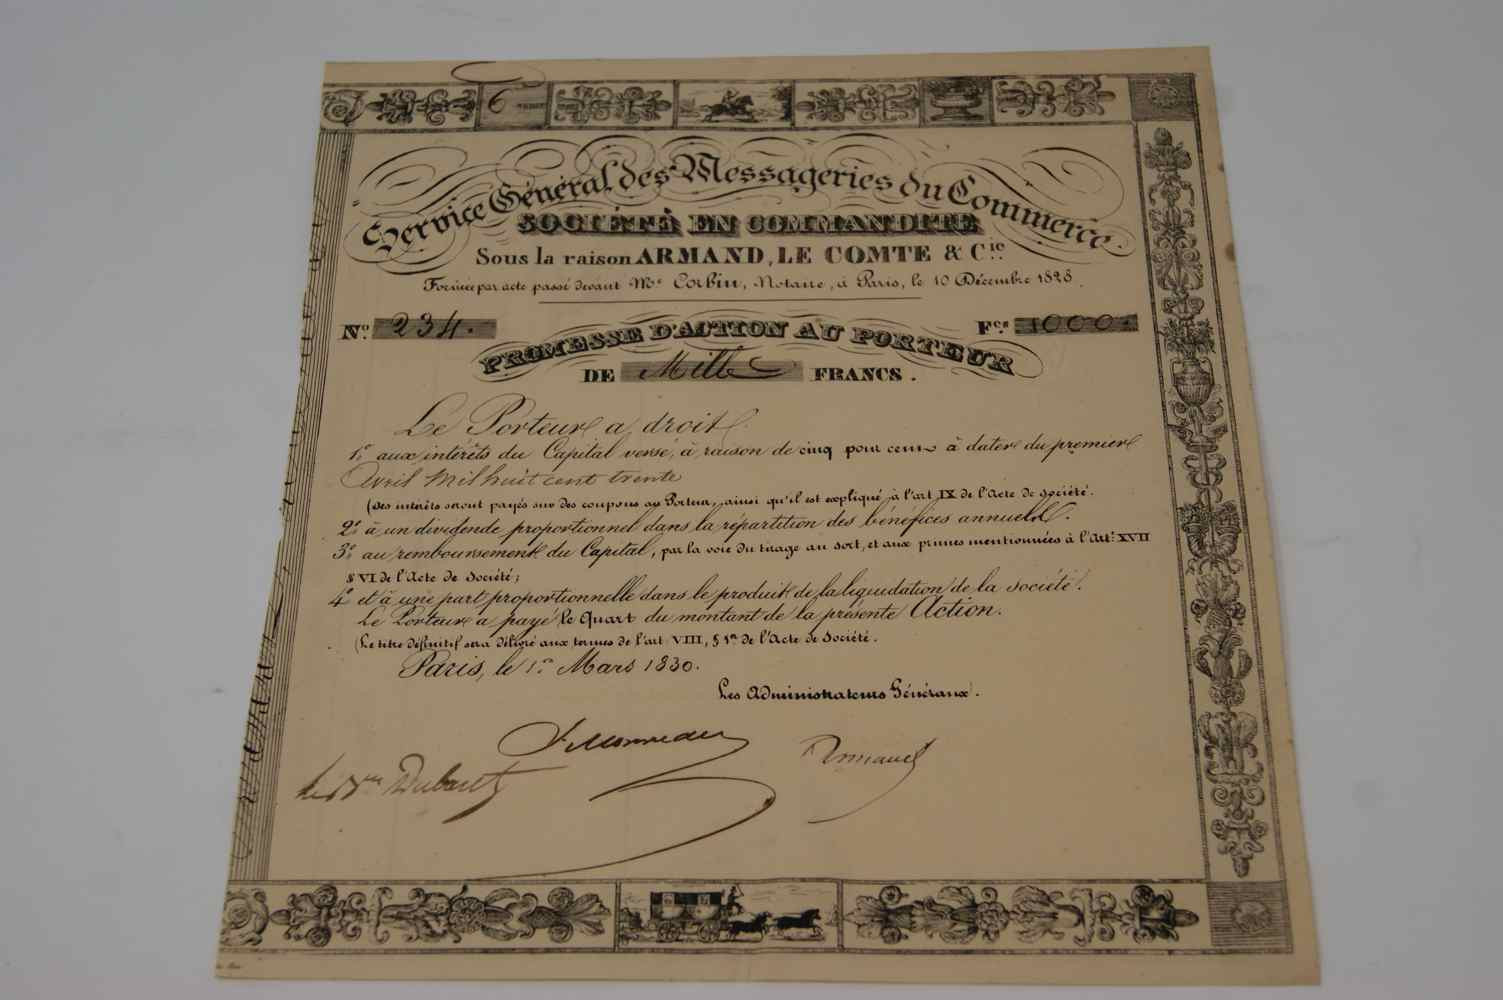 Service Général des Messageries du Commerce.
SOCIÉTÉ EN COMMANDITE
Sous la raison ARMAND, LE COMTE & Cie.
Formée par acte passé devant Me. Corbin, Notaire, à Paris, le 10 Décembre 1828.
No. 234. Fcs. 1000.
PROMESSE D'ACTION AU PORTEUR
DE Mille FRANCS.
Le Porteur a droit
1o. aux intérêts du Capital versé, à raison de cinq pour cent à dater du premier
Avril Mil huit cent trente
(Les intérêts seront payés sur des coupons au Porteur, ainsi qu'il est expliqué à l'art IX de l'Acte de Société.
2o. à un dividende proportionnel dans la répartition des bénéfices annuels.
3o. au remboursement du Capital, par la voie du tirage au sort, et aux primes mentionnées à l'Art. XVII
§ VI de l'Acte de Société;
4o. et à une part proportionnelle dans le produit de la liquidation de la société.
Le Porteur a payé le Quart du montant de la présente Action.
(Le titre définitif sera délivré aux termes de l'art VIII, § 1er de l'Acte de Société.
Paris, le 1er Mars 1830.
Les Administrateurs Généraux.
Armand